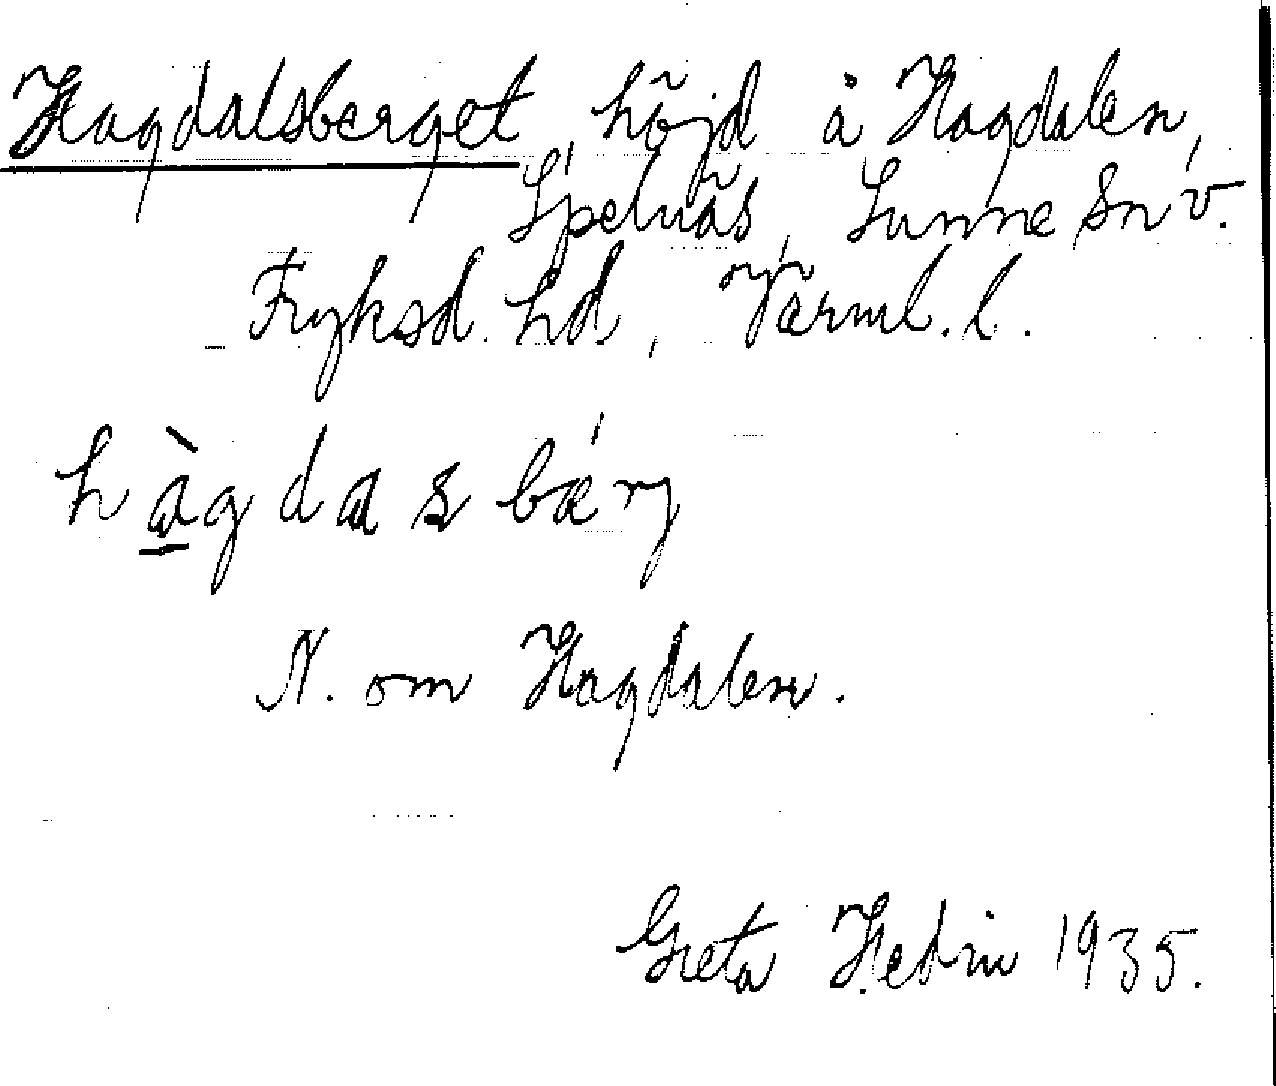 Hagdalsberget, höjd å Hagdalen,
Spelnäs, Sunne sn v.
Fryksd. hd, Värml. l.
hàgdasbǽrj
N. om Hagdalen.
Greta Hedin 1935.